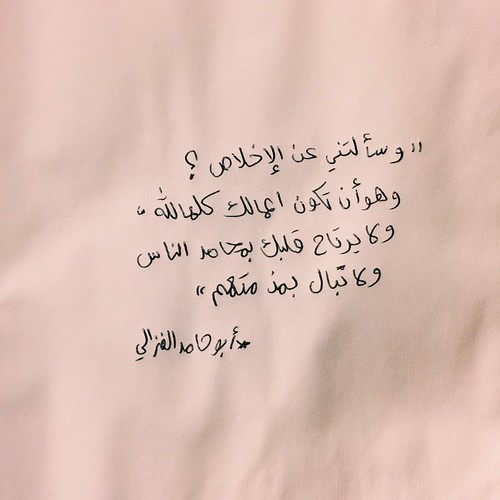 "وسألتني عن الإخلاص ؟
وهو أن تكون اعمالك كلها لله ،
ولا يرتاح قلبك بمحامد الناس
ولا تبال بمذمتهم"
*أبو حامد الغزالي